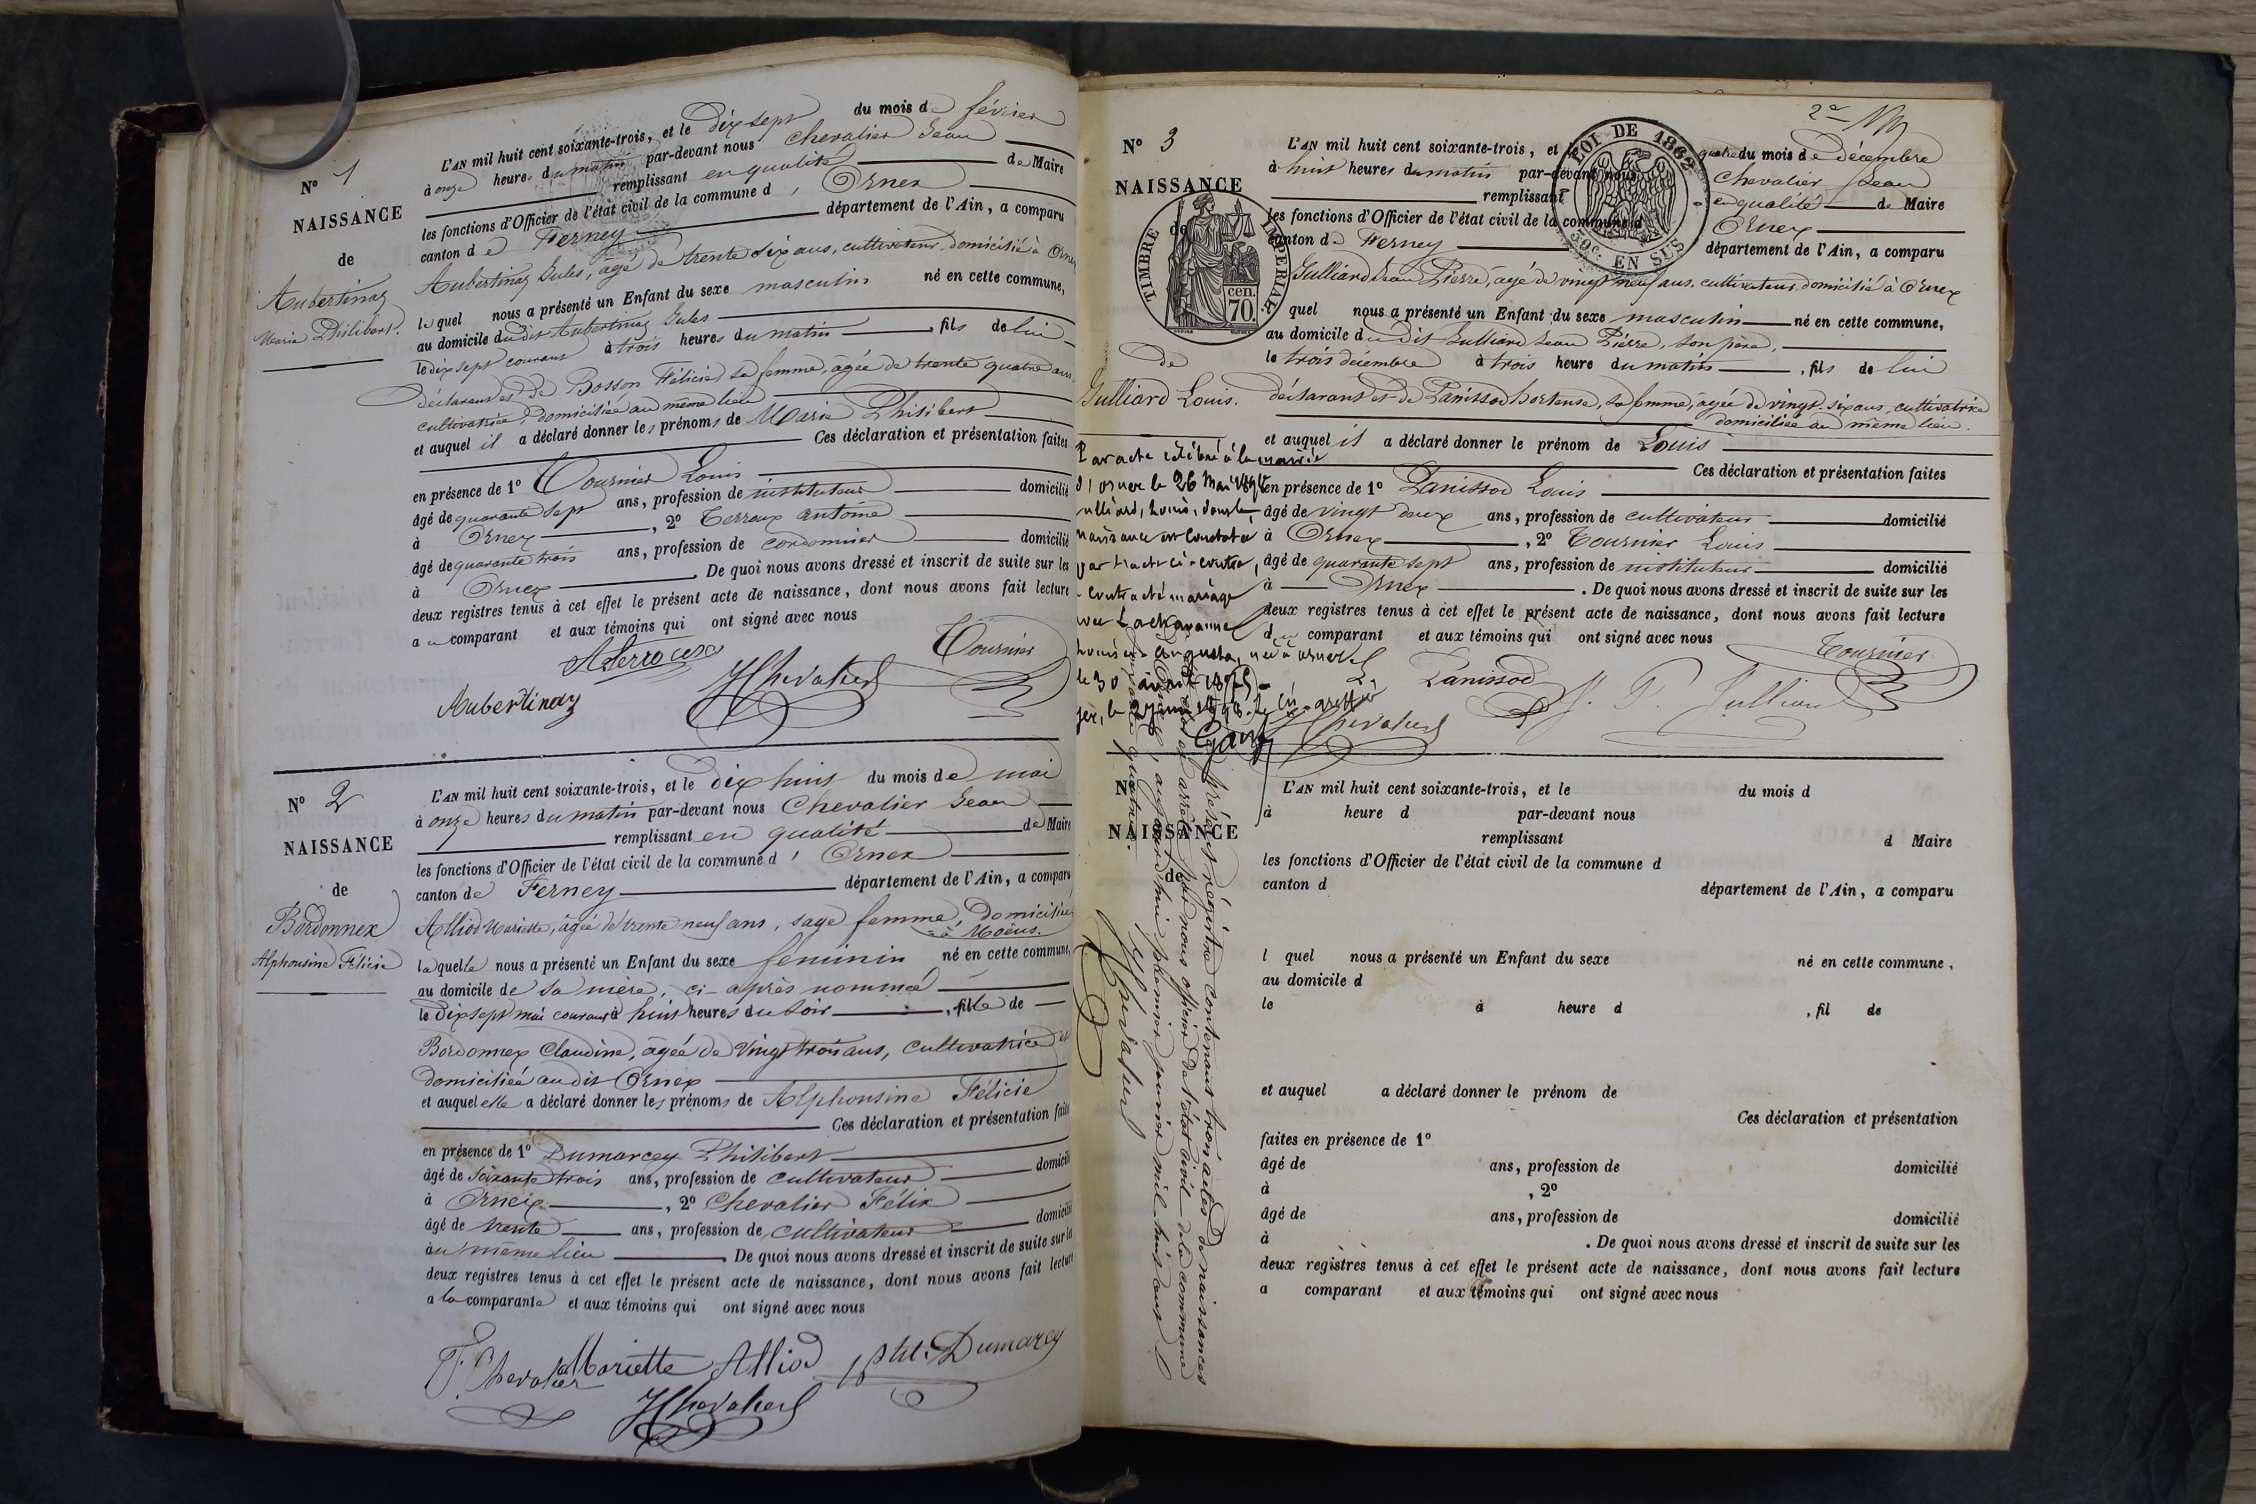 N° 1
NAISSANCE
de
Aubertinaz
Marie Philibert.
L'AN mil huit cent soixante-trois, et le Dix sept du mois de février
à onze heures du matin par-devant nous Chevalier Jean
remplissant en qualité de Maire
les fonctions d'Officier de l'état civil de la commune d'Ornex
canton de Ferney département de l'Ain, a comparu
Aubertinaz Jules, âgé de trente six ans, cultivateur, domicilié à Ornex
lequel nous a présenté un Enfant du sexe masculin né en cette commune,
au domicile du dit Aubertinaz Jules
le dix sept courant à trois heures du matin fils de lui
déclarant et de Bosson Félicie, sa femme, âgée de trente quatre ans
cultivatrice, domiciliée au même lieu
et auquel il a déclaré donner les prénoms de Marie Philibert
Ces déclaration et présentation faites
en présence de 1° Tournier Louis
âgé de quarante sept ans, profession de instituteur domicilié
à Ornex, 2° Terroux Antoine
âgé de quarante trois ans, profession de cordonnier domicilié
à Ornex. De quoi nous avons dressé et inscrit de suite sur les
deux registres tenus à cet effet le présent acte de naissance, dont nous avons fait lecture
au comparant et aux témoins qui ont signé avec nous
ATerroux Tournier
Aubertinaz JChevalier
N° 2
NAISSANCE
de
Bordonnex
Alphonsine Félicie
L'AN mil huit cent soixante-trois, et le dix huit du mois de mai
à onze heures du matin par-devant nous Chevalier Jean
remplissant en qualité de Maire
les fonctions d'Officier de l'état civil de la commune d'Ornex
canton de Ferney département de l'Ain, a comparu
Alliod Mariette, âgée de trente neuf ans, sage femme, domiciliée
à Moëns.
laquelle nous a présenté un Enfant du sexe féminin né en cette commune,
au domicile de sa mère, ci-après nommée
le dix sept mai courant à huit heures du soir, fille de
Bordonnex Claudine, âgée de vingt trois ans, cultivatrice et
domiciliée au dit Ornex
et auquel elle a déclaré donner les prénoms de Alphonsine Félicie
Ces déclaration et présentation faites
en présence de 1° Dumarcey Philibert
âgé de soixante trois ans, profession de cultivateur domicilié
à Ornex, 2° Chevalier Félix
âgé de trente ans, profession de cultivateur domicilié
au même lieu. De quoi nous avons dressé et inscrit de suite sur les
deux registres tenus à cet effet le présent acte de naissance, dont nous avons fait lecture
a la comparante et aux témoins qui ont signé avec nous
F. Chevalier Mariette Alliod Pht. Dumarcey
JChevalier
N° 3
NAISSANCE
de
TIMBRE IMPERIAL
cen. 70.
LOI DE 1862
50c. EN SUS
de
Gulliard Louis.
L'AN mil huit cent soixante-trois, et le quatre du mois de décembre
à huit heures du matin par-devant nous Chevalier Jean
remplissant en qualité de Maire
les fonctions d'Officier de l'état civil de la commune d'Ornex
canton de Ferney département de l'Ain, a comparu
Gulliard Jean Pierre, âgé de vingt neuf ans, cultivateur, domicilié à Ornex
quel nous a présenté un Enfant du sexe masculin né en cette commune,
au domicile du dit Gulliard Jean Pierre, son père,
le trois décembre à trois heure du matin, fils de lui
déclarant et de Panissod hortense, sa femme, âgée de vingt-six ans, cultivatrice
domiciliée au même lieu.
et auquel il a déclaré donner le prénom de Louis
Ces déclaration et présentation faites
en présence de 1° Panissod Louis
âgé de vingt deux ans, profession de cultivateur domicilié
à Ornex, 2° Tournier Louis
âgé de quarante sept ans, profession de instituteur domicilié
à Ornex. De quoi nous avons dressé et inscrit de suite sur les
deux registres tenus à cet effet le présent acte de naissance, dont nous avons fait lecture
au comparant et aux témoins qui ont signé avec nous
L Panissod Tournier
J. P Gulliard
JChevalier
Par acte célébré à la mairie
d'Ornex le 26 Mai
Gulliard, Louis, dont la
naissance est constatée
par l'acte ci-contre,
a contracté mariage
avec Lachavanne
Louise Augusta, née à Ornex
le 30 avril
Gex, le Le Cis greffier
N°
NAISSANCE
de
L'AN mil huit cent soixante-trois, et le du mois d
à heure d par-devant nous
remplissant d Maire
les fonctions d'Officier de l'état civil de la commune d
canton d département de l'Ain, a comparu
l quel nous a présenté un Enfant du sexe né en cette commune,
au domicile d
le à heure d, fil de
et auquel a déclaré donner le prénom de
Ces déclaration et présentation
faites en présence de 1°
âgé de ans, profession de domicilié
à, 2°
âgé de ans, profession de domicilié
à. De quoi nous avons dressé et inscrit de suite sur les
deux registres tenus à cet effet le présent acte de naissance, dont nous avons fait lecture
a comparant et aux témoins qui ont signé avec nous
présent registre contenant trois actes de naissances
arrêté par nous officier de l'état civil de la commune
d'Ornex, aujourd'hui premier janvier mil huit cent
soixante quatre.
JChevalier